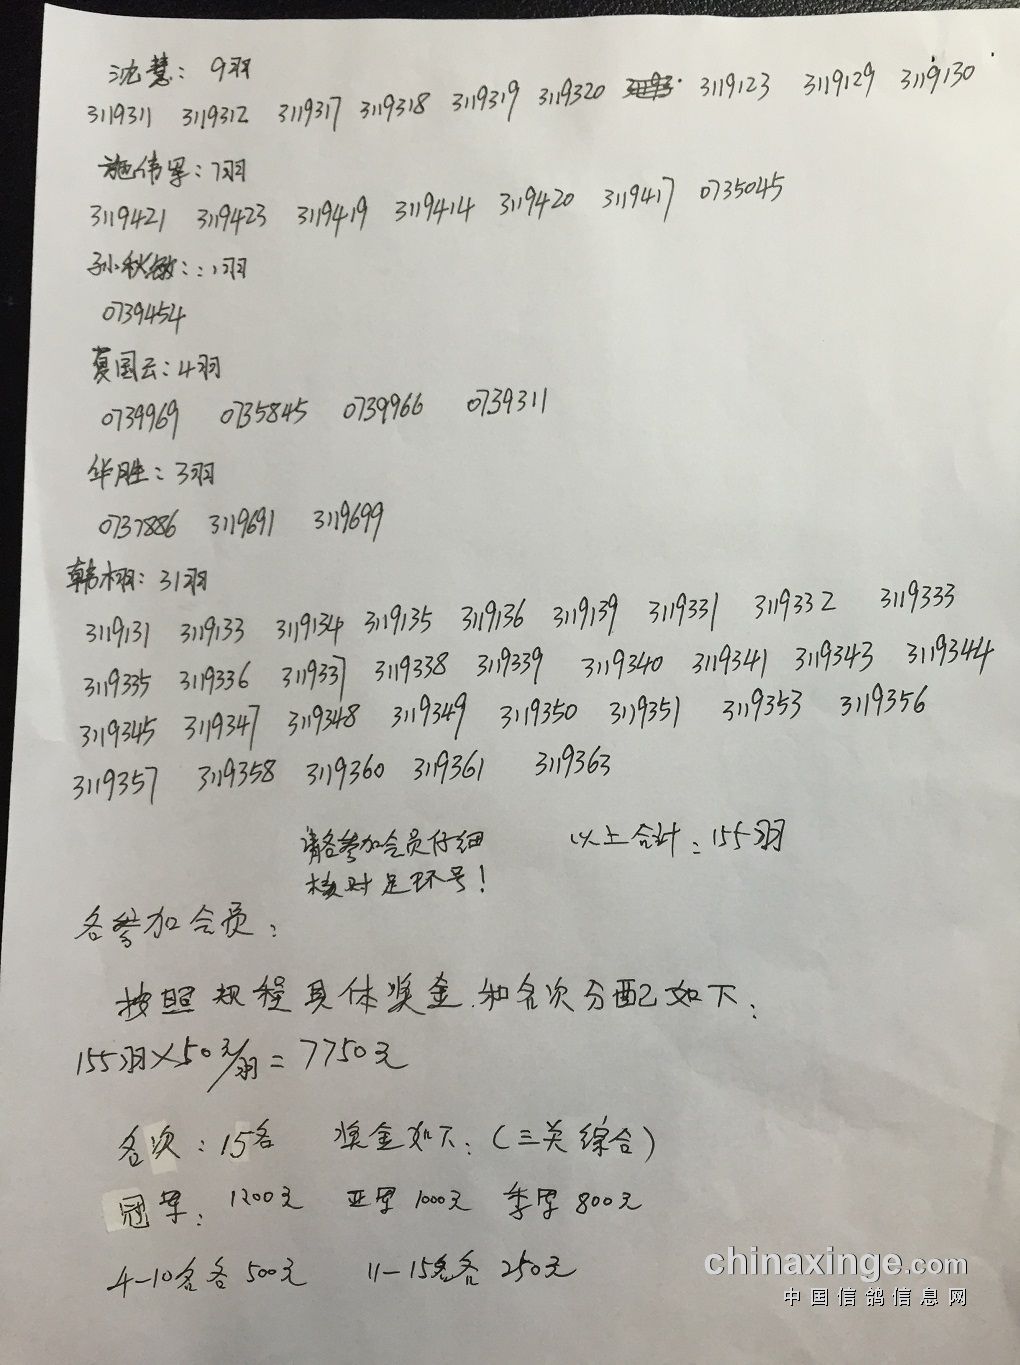 沈慧：9羽
3119311 3119312 3119317 3119318 3119319 3119320 3119123 3119129 3119130
施伟军：7羽
3119421 3119423 3119419 3119414 3119420 3119417 0735045
孙秋敏：：1羽
0739454
夏国云：4羽
0739969 0735845 0739966 0739311
华胜：3羽
0737886 3119691 3119699
韩栩：31羽
3119131 3119133 3119134 3119135 3119136 3119139 3119331 3119332 3119333
3119335 3119336 3119337 3119338 3119339 3119340 3119341 3119343 3119344
3119345 3119347 3119348 3119349 3119350 3119351 3119353 3119356
3119357 3119358 3119360 3119361 3119363
请各参加会员仔细 以上合计：155羽
核对足环号！
各参加会员：
按照规程具体奖金和名次分配如下：
155羽×50元/羽=7750元
名次：15名 奖金如下：（三关综合）
冠军：1200元 亚军1000元 季军800元
4-10名各500元 11-15名各250元
chinaxinge.com
中国信鸽信息网